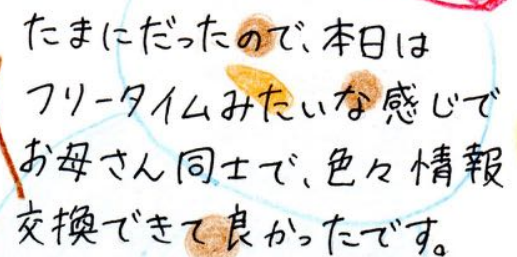 たまにだったので、本日は
フリータイムみたいな感じで
お母さん同士で、色々情報
交換できて良かったです。